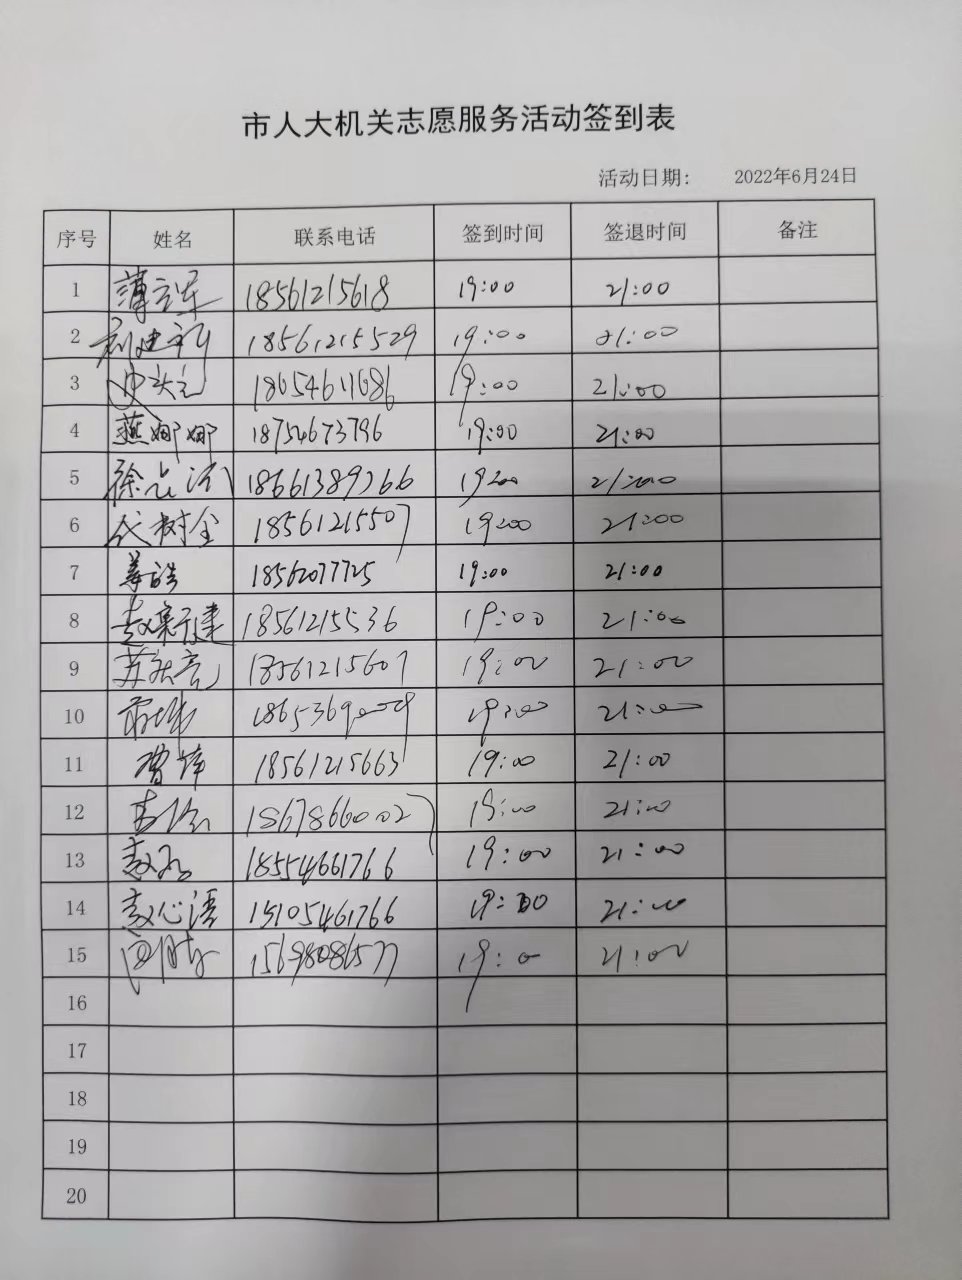 市人大机关志愿服务活动签到表
活动日期: 2022年6月24日
序号 姓名 联系电话 签到时间 签退时间 备注
1 薄立军 18561215618 19:00 21:00
2 18561215529 19:00 21:00
3 18654611686 19:00 21:00
4 燕娜娜 18754673796 19:00 21:00
5 19:00 21:00
6 代树全 18561215507 19:00 21:00
7 姜皓 18562077725 19:00 21:00
8 赵新建 18561215536 19:00 21:00
9 18561215607 19:00 21:00
10 19:00 21:00
11 18561215663 19:00 21:00
12 19:00 21:00
13 18554661766 19:00 21:00
14 赵心语 15105461766 19:00 21:00
15 15698086577 19:0 21:00
16
17
18
19
20